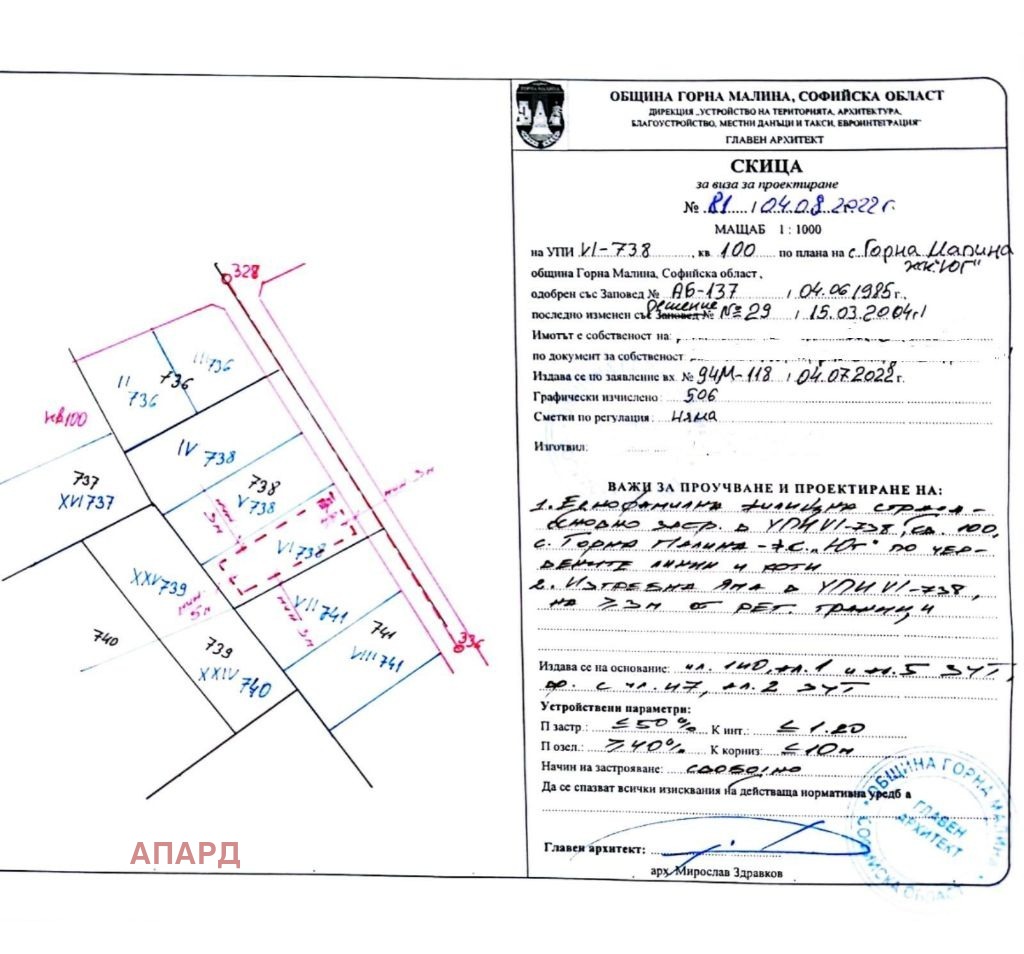 328
III 736
II 736
736
кв100
IV 738
737
XVI 737
738
V 738
мин 3м
мин 3м
VI 738
XXV 739
мин 5м
мин 3м
VII 741
741
740
739
VIII 741
XXIV 740
336
АПАРД
ОБЩИНА ГОРНА МАЛИНА, СОФИЙСКА ОБЛАСТ
ДИРЕКЦИЯ „УСТРОЙСТВО НА ТЕРИТОРИЯТА, АРХИТЕКТУРА,
БЛАГОУСТРОЙСТВО, МЕСТНИ ДАНЪЦИ И ТАКСИ, ЕВРОИНТЕГРАЦИЯ"
ГЛАВЕН АРХИТЕКТ
СКИЦА
за виза за проектиране
№ 81 / 04.08.2022 г.
МАЩАБ 1 : 1000
на УПИ VI-738, кв 100 по плана на с. Горна Малина
жк "Юг"
община Горна Малина, Софийска област,
одобрен със Заповед № АБ-137 / 04.06 1985 г.,
последно изменен със Заповед № Решение №29 / 15.03.2004 г
Имотът е собственост на:
по документ за собственост
Издава се по заявление вх. № 94М-118 / 04.07.2022 г.
Графически изчислено: 506
Сметки по регулация: няма
Изготвил:
ВАЖИ ЗА ПРОУЧВАНЕ И ПРОЕКТИРАНЕ НА:
1. Еднофамилна жилищна сграда -
основно застр. в УПИ VI-738, кв. 100,
с. Горна Малина - ж.с. „Юг" по чер-
вените линии и коти
2. Изгребна яма в УПИ VI-738,
на ≥3м от рег. граници
Издава се на основание: чл. 140, ал. 1 и ал. 5 ЗУТ,
вр. с чл. 47, ал. 2 ЗУТ
Устройствени параметри:
П застр.: ≤ 50 % К инт.: ≤ 1.20
П озел.: ≥ 40% К корниз: ≤ 10м
Начин на застрояване: свободно
Да се спазват всички изисквания на действаща нормативна уредб а
Главен архитект:
арх. Мирослав Здравков
ОБЩИНА ГОРНА МАЛИНА
СОФИЙСКА ОБЛАСТ
ГЛАВЕН
АРХИТЕКТ